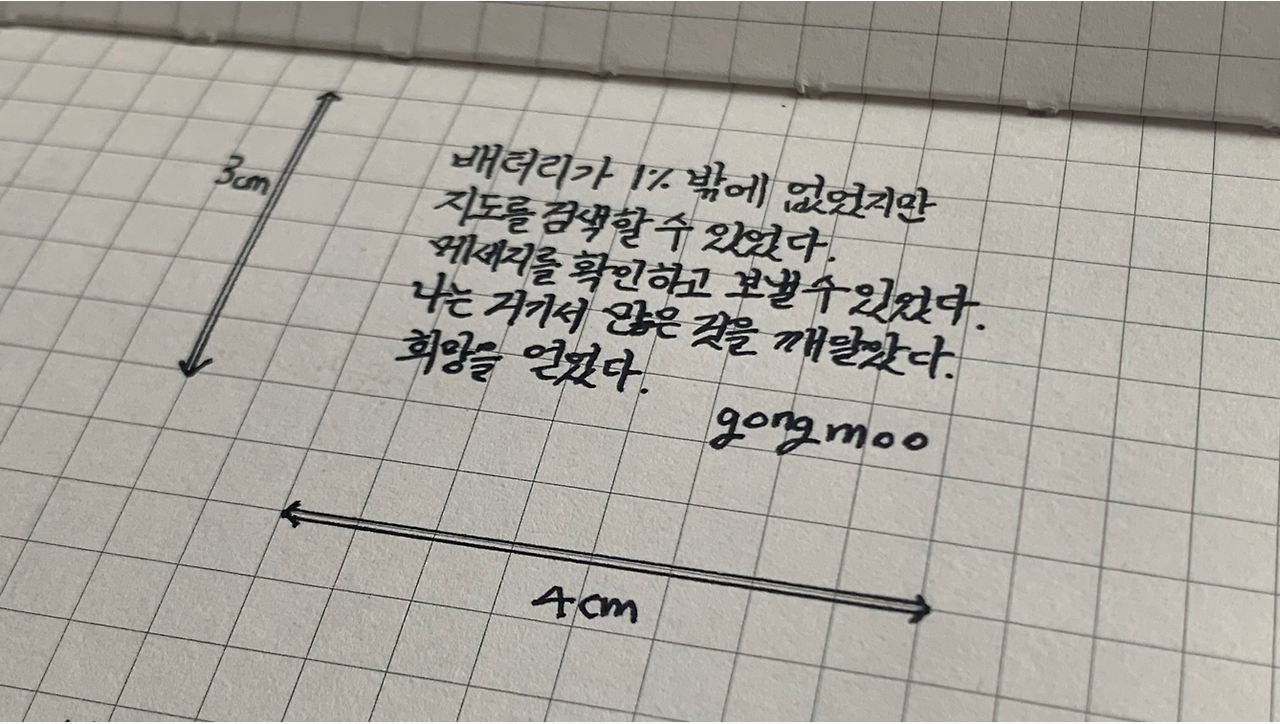 3cm
배터리가 1% 밖에 없었지만
지도를 검색할 수 있었다.
메세지를 확인하고 보낼 수 있었다.
나는 거기서 많은 것을 깨달았다.
희망을 얻었다.
gongmoo
4cm